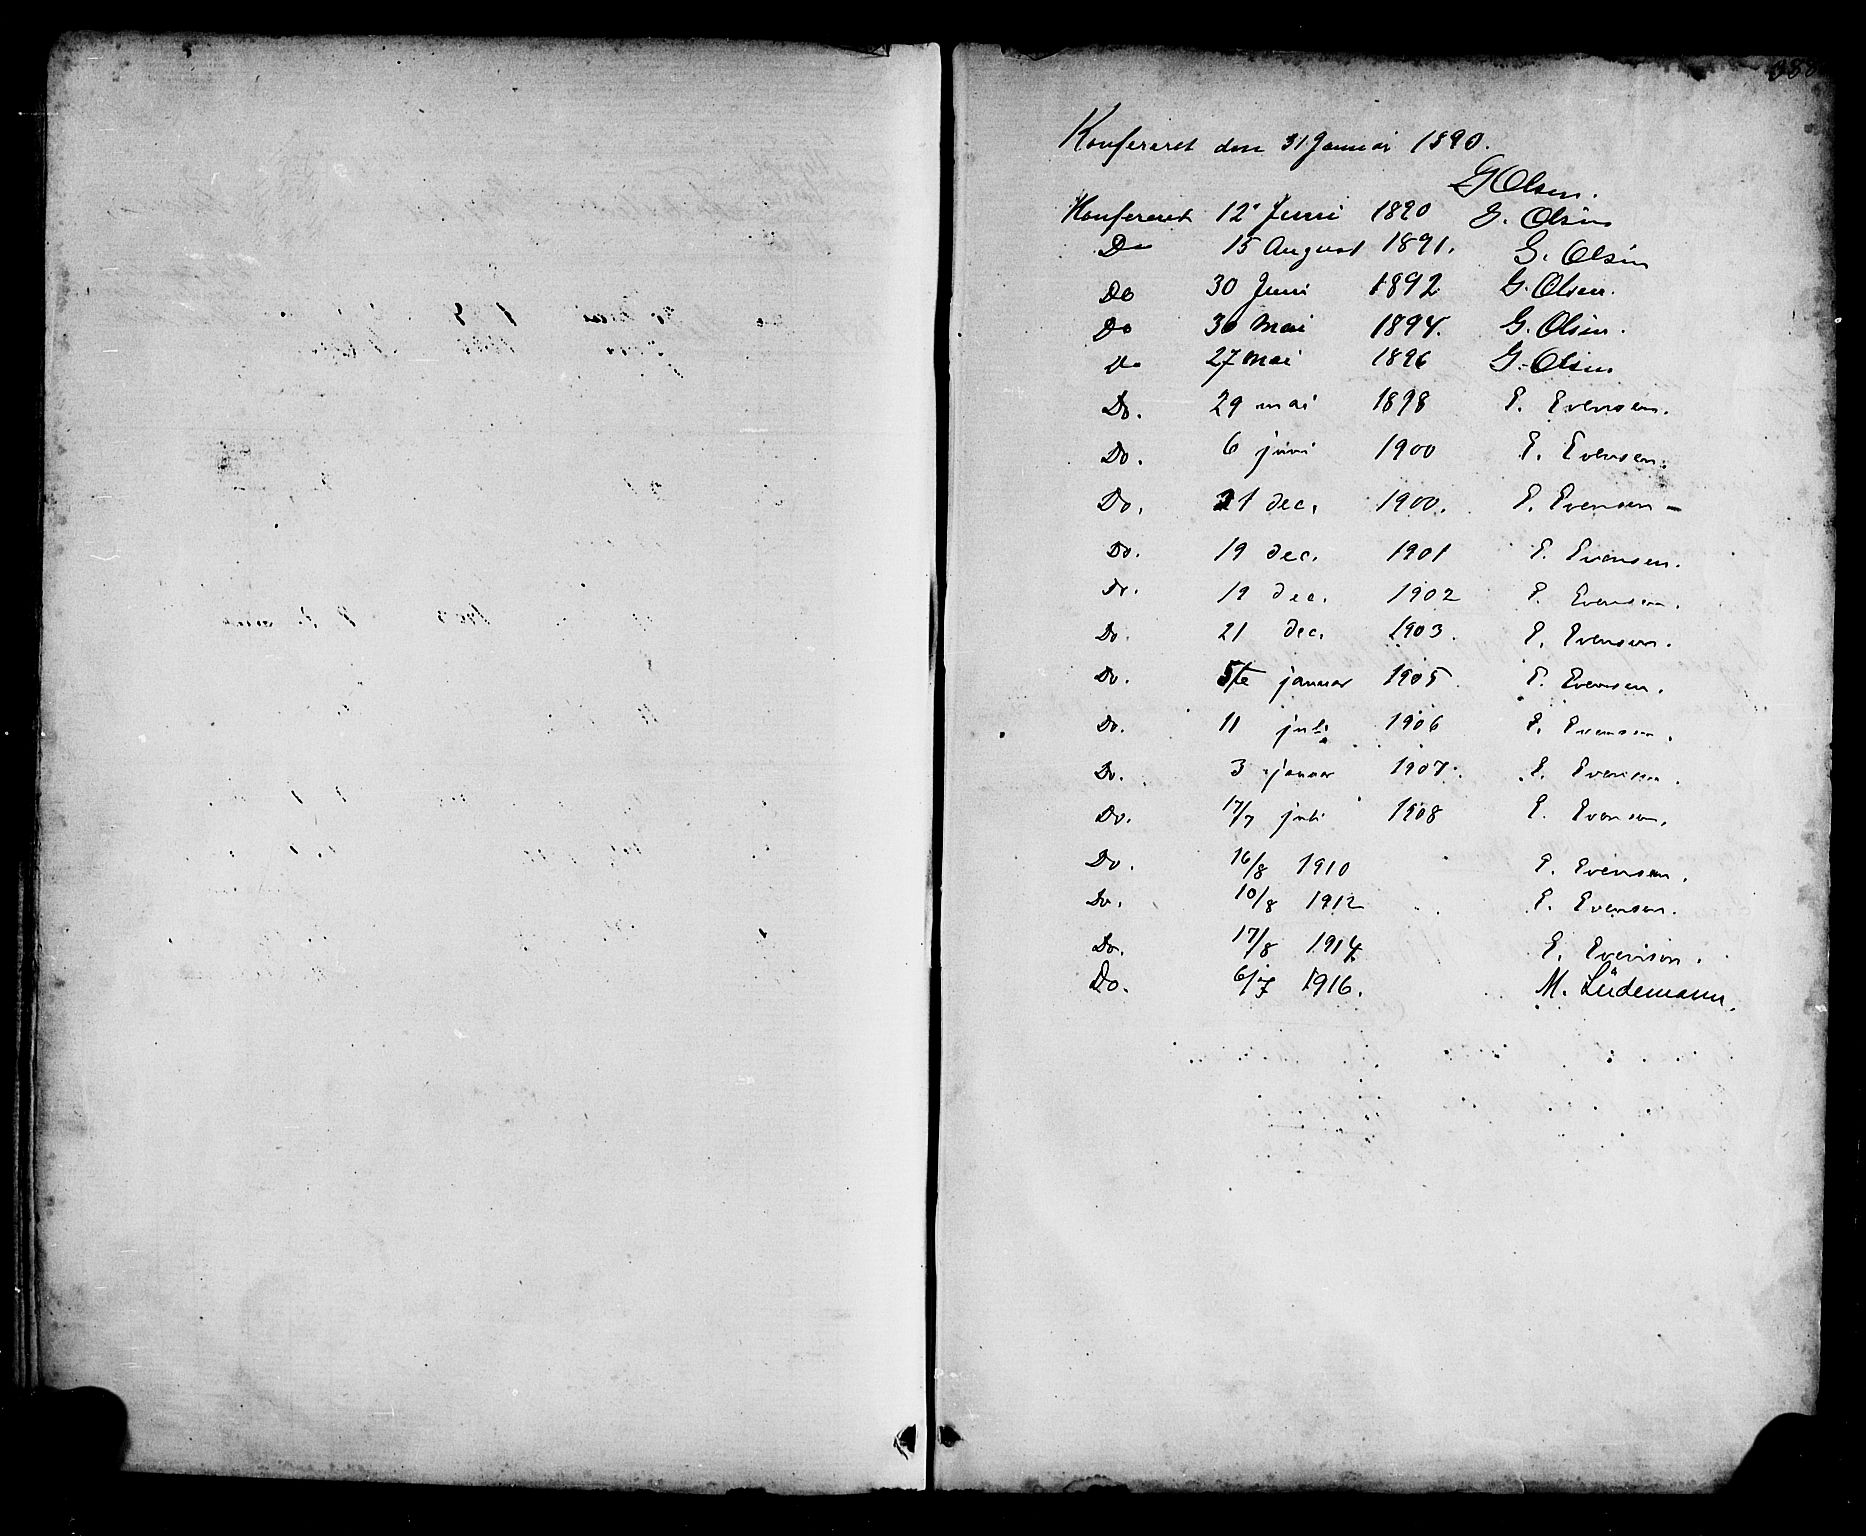 Konfereret den 31 Januar 1890.
G Olsen.
Konfereret 12' Juni 1890 G. Olsen
Do 15 August 1891. G. Olsen
Do 30 Juni 1892 G. Olsen.
Do 30 Mai 1894. G. Olsen.
Do 27 Mai 1896 G. Olsen
Do. 29 mai 1898 E. Evensen.
Do. 6 juni 1900 E. Evensen.
Do. 21 dec. 1900. E. Evensen -
Do. 19 dec. 1901 E. Evensen.
Do. 19 dec. 1902 E. Evensen.
Do. 21 dec. 1903. E. Evensen.
Do. 5te januar 1905. E. Evensen.
Do. 11 juli 1906 E. Evensen.
Do. 3 januar 1907. E. Evensen.
Do. 17/7 juli 1908 E. Evensen.
Do. 16/8 1910 E. Evensen.
Do. 10/8 1912 E. Evensen.
Do. 17/8 1914 E. Evensen.
Do. 6/7 1916. M. Lüdemann.